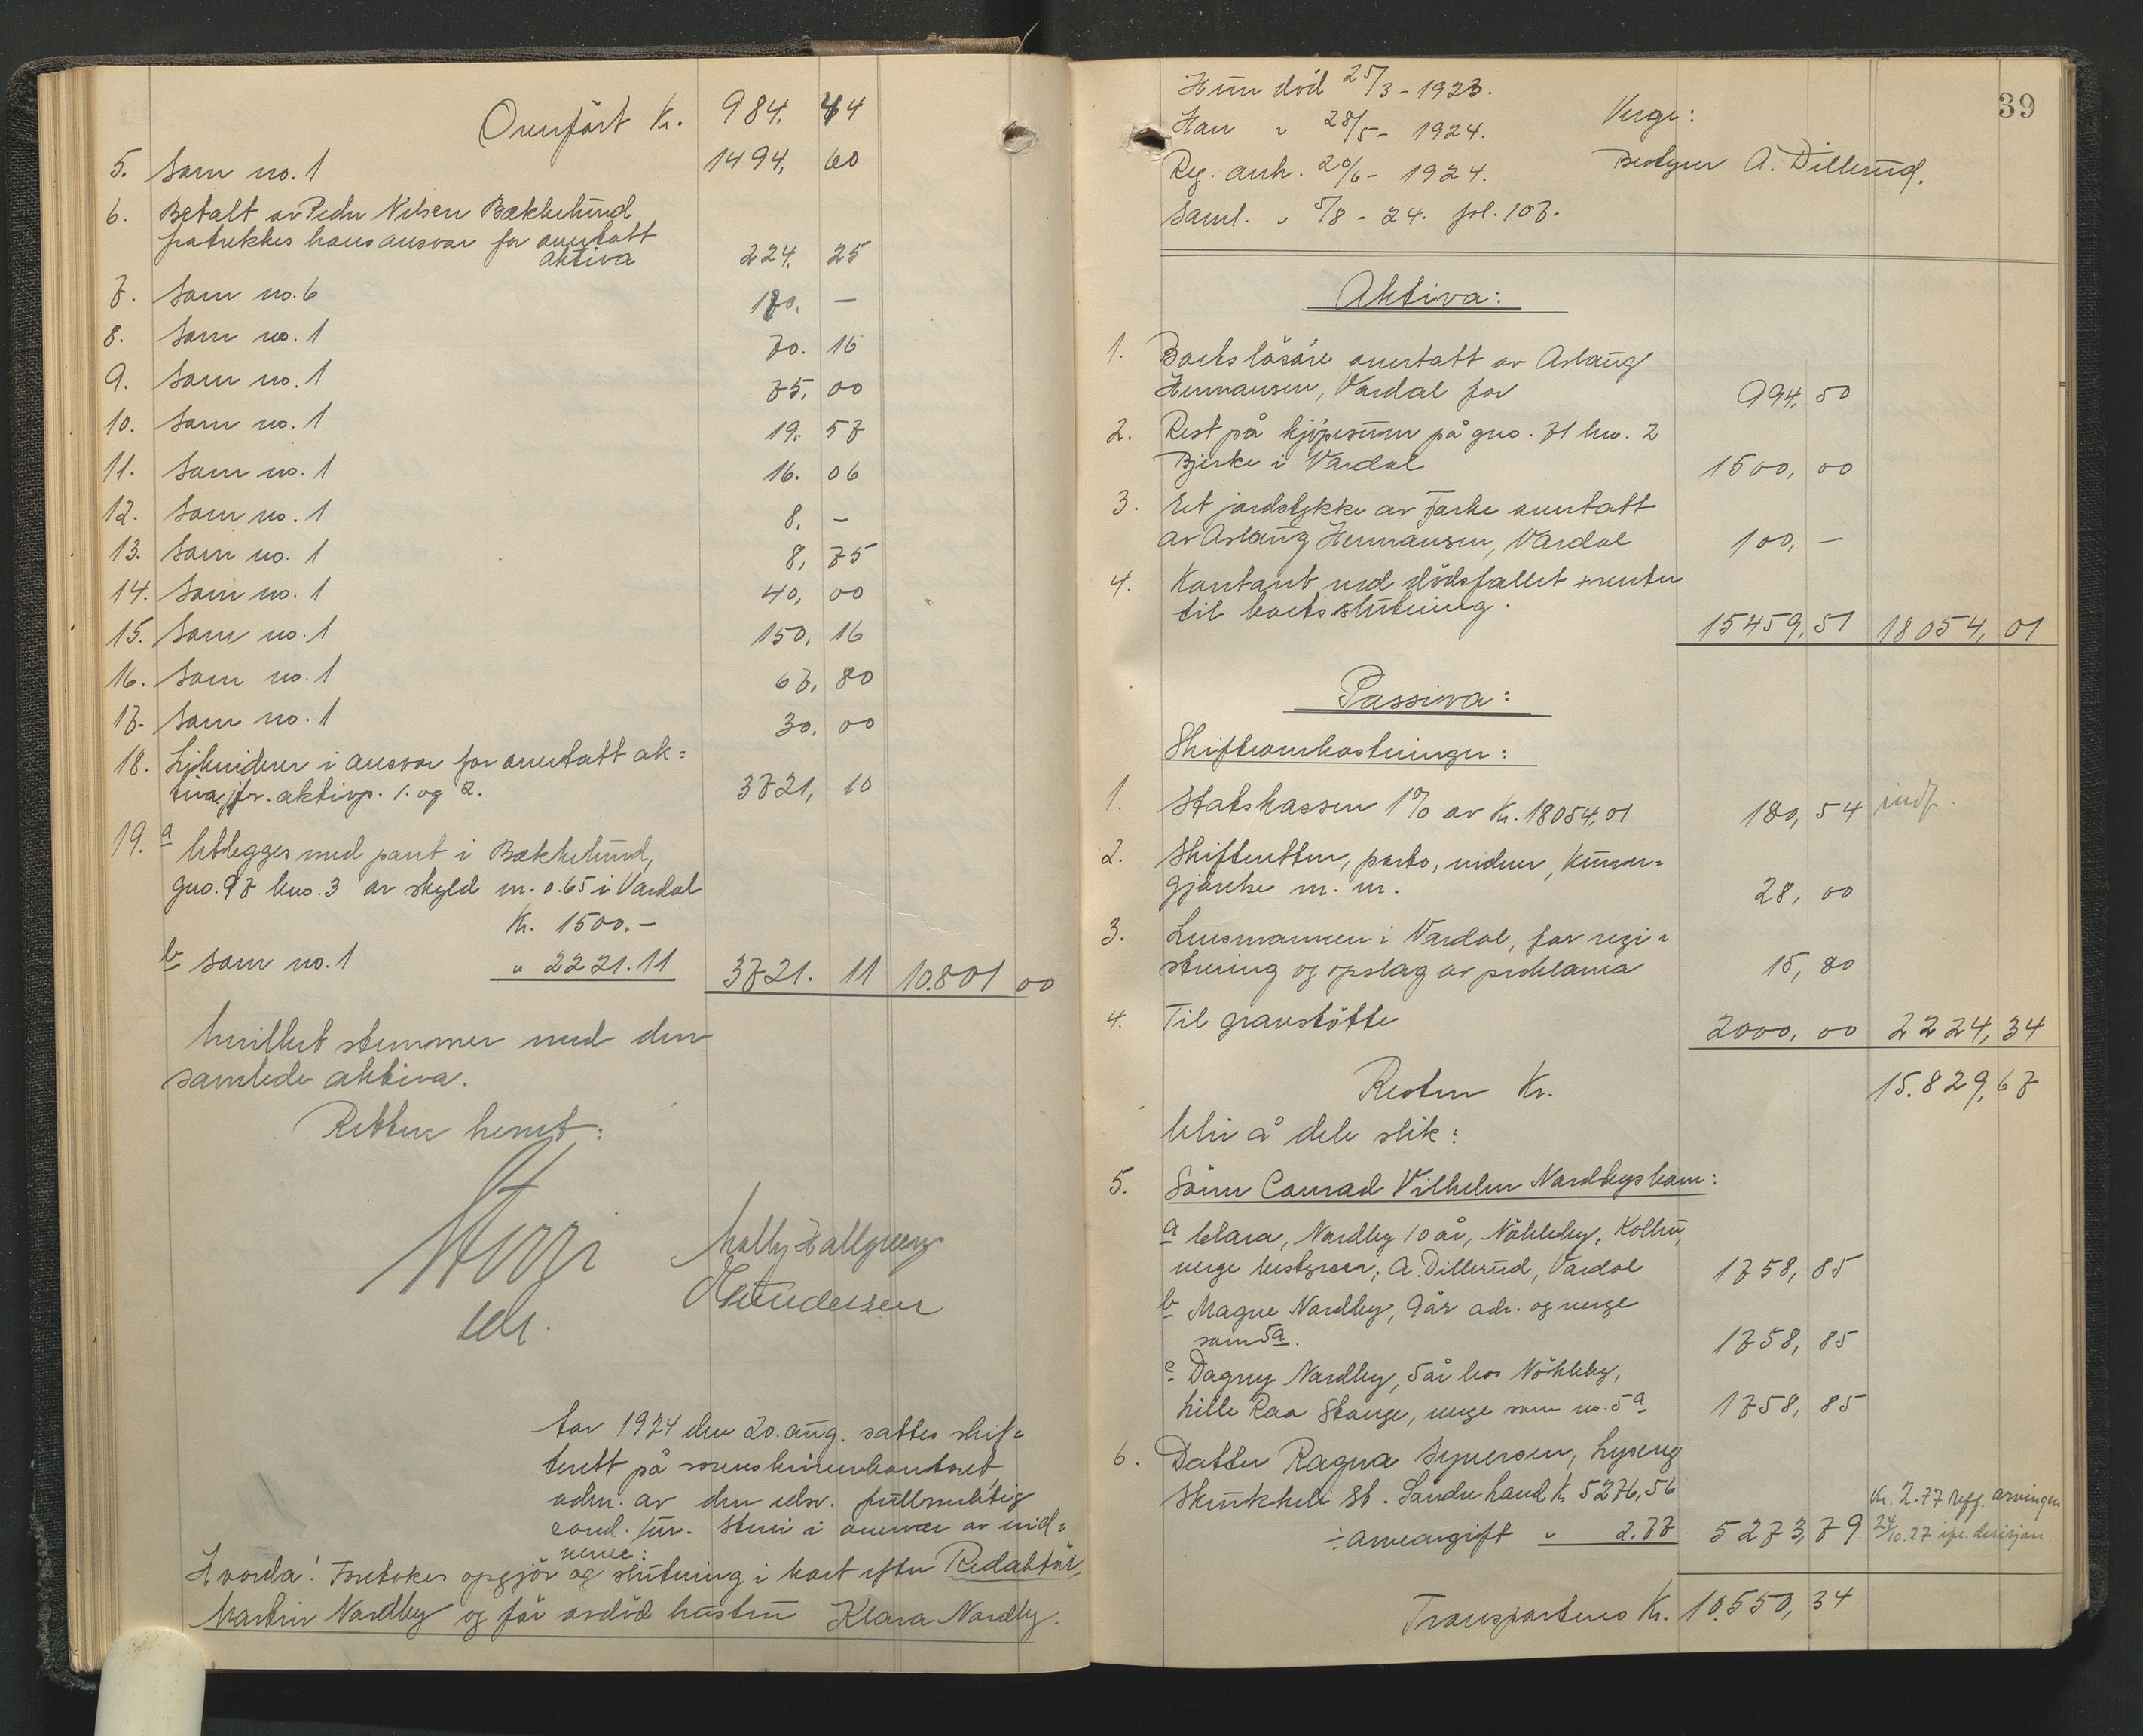 Overført Kr. 984, 44
5. Som no. 1 1494, 60
6. Betalt av Peder Nilsen Bækkelund
fratrekkes hans ansvar for overtatt
aktiva 224, 25
7. Som no. 6 170, —
8. Som no. 1 70. 15
9. Som no. 1 75, 00
10. Som no. 1 19. 57
11. Som no. 1 16. 06
12. Som no. 1 8, —
13. Som no. 1 8, 75
14. Som no. 1 40, 00
15. Som no. 1 150, 16
16. Som no. 1 67, 80
17. Som no. 1 30, 00
18. Likviderer i ansvar for overtatt ak=
tiva, jfr. aktivp. 1. og 2. 3721, 10
19. a Utlegges med pant i Bækkelund,
gno. 97 bno. 3 av skyld m. 0.65 i Vardal
Kr. 1500.—
b som no. 1 " 2221.11 3721. 11 10.801 00
hvilket stemmer med den
samlede aktiva.
Retten hevet:
Steri
edr.
Molly Hallgreen
Aar 1924 den 20. aug. sattes skif=
terett på sorenskriverkontoret
adm. av den edsv. fullmektig
cand. jur. Steri i overvær av vid=
nene:
Hvorda! Foretokes opgjør og slutning i boet efter Redaktør
Martin Nordby og før avdød hustru Klara Nordby.
39
Hun død 25/3 - 1923.
Han " 28/5 - 1924.
Reg. anh. 20/6 - 1924.
Saml. " 5/8 - 24. fol. 107.
Verge:
Bestyrer A. Dillerud.
Aktiva:
1. Boets løsøre overtatt av Aslaug
Hermansen, Vardal for 994, 50
2. Rest på kjøpesum på gno. 71 bno. 2
Bjerke i Vardal 1500, 00
3. Et jordstykke av overtatt
av Aslaug Hermansen, Vardal 100, —
4. Kontant ved dødsfallet + renter
til boets slutning. 15459, 51 18054, 01
Passiva:
Skifteomkostninger:
1. Statskassen 1 % av Kr. 18054,01 180, 54 indf.
2. Skifteretten, porto, vidner, kunn=
gjørelse m. m. 28, 00
3. Lensmannen i Vardal, for regi=
strering og opslag av proklama 15, 80
4. Til gravstøtte 2000, 00 2224, 34
Resten Kr. 15.829, 67
blir å dele slik:
5. Sønn Conrad Vilhelm Nordbys barn:
a Clara, Nordby 10 år, Nökleby, Kolbu,
verge bestyrer, A. Dillerud, Vardal 1758, 85
b Magne Nordby, 9 år adr. og verge
som 5a. 1758, 85
c Dagny Nordby, 5 år hos Nökleby,
Lille Raa Stange, verge som no. 5a 1758, 85
6. Datter Ragna Syversen, Lyseng
St. Søndre Land Kr. 5276,56
÷ arveavgift " 2.77 5273, 79
Kr. 2.77 reff. arvingen
24/10.27 decisjon.
Transporteres Kr. 10.550, 34